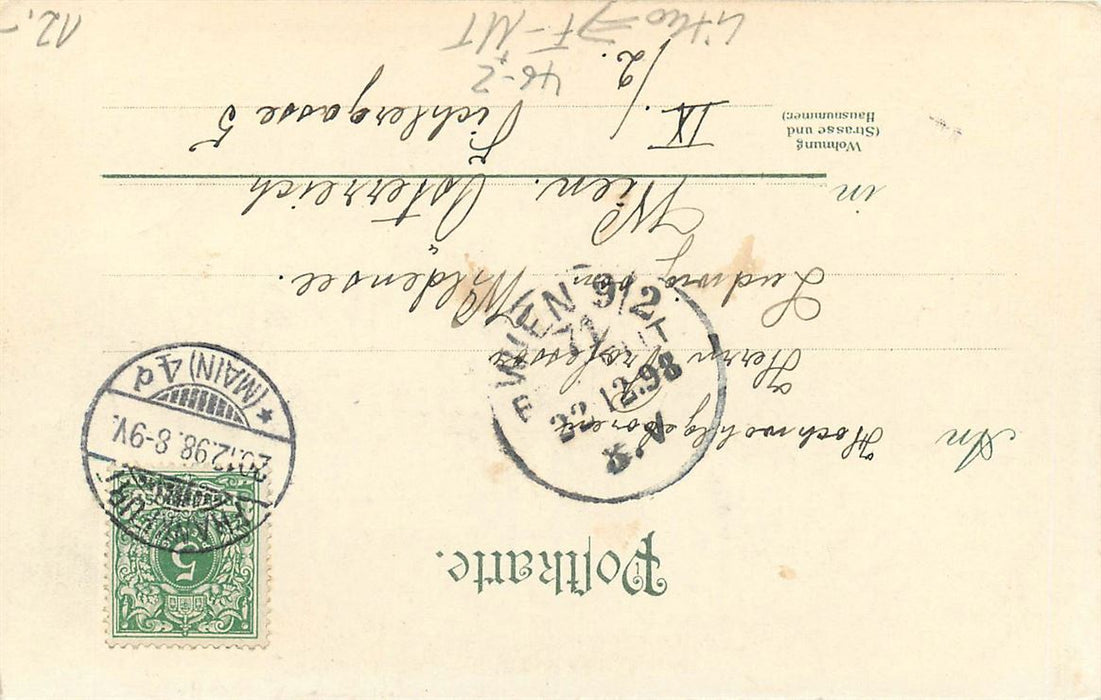 Postkarte.
5
FRANKFURT
20.12.98. 8-9V.
* (MAIN) 4 d
An
Hochwohlgeboren
Herrn Professor
Ludwig von Wildensee.
in Wien. Österreich
Wohnung
(Strasse und
Hausnummer)
IX./2.
5
WIEN 9/2
22.12.98
46-2
12.-